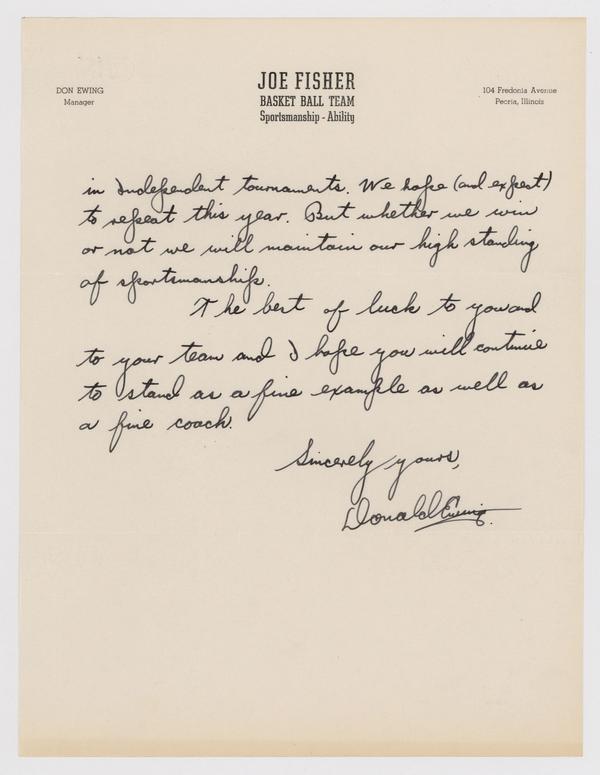 JOE FISHER
BASKET BALL TEAM
Sportsmanship - Ability
DON EWING
Manager
104 Fredonia Avenue
Peoria, Illinois
in Independent tournaments. We hope (and expect)
to repeat this year. But whether we win
or not we will maintain our high standing
of sportsmanship.
The best of luck to you and
to your team and I hope you will continue
to stand as a fine example as well as
a fine coach.
Sincerely yours,
Donald Ewing.